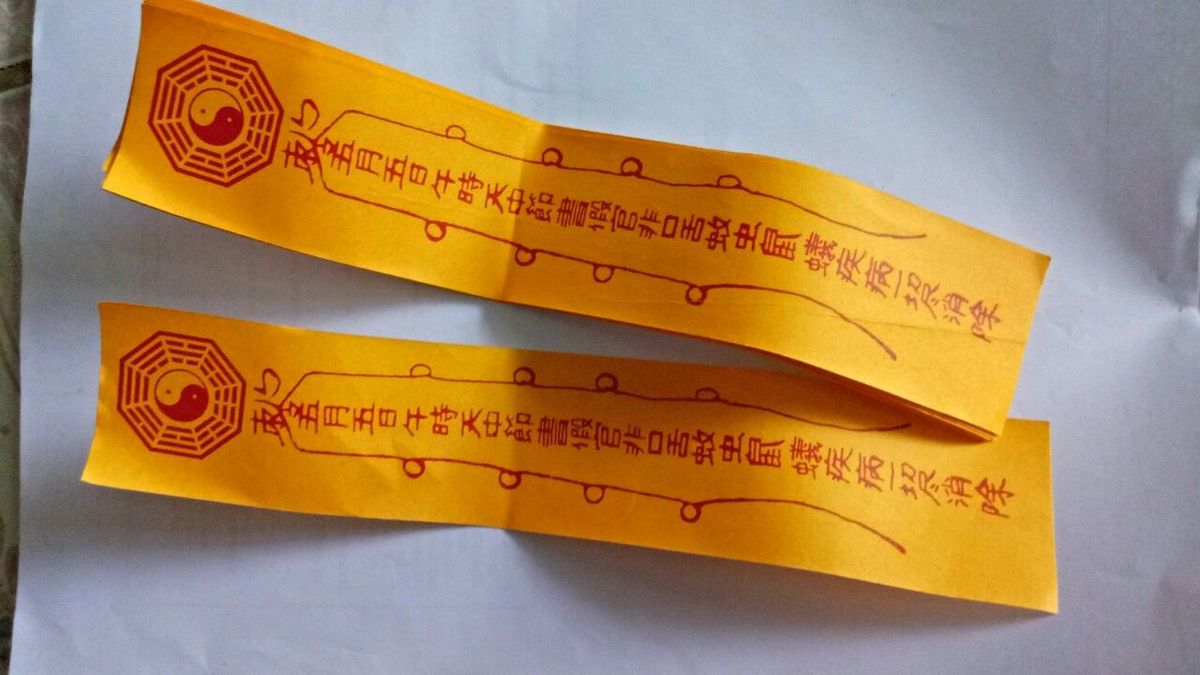 敕令五月五日午時天中節書假官非口舌蚊虫鼠蟻疾病一消除
敕令五月五日午時天中節書假官非口舌蚊虫鼠蟻疾病一消除